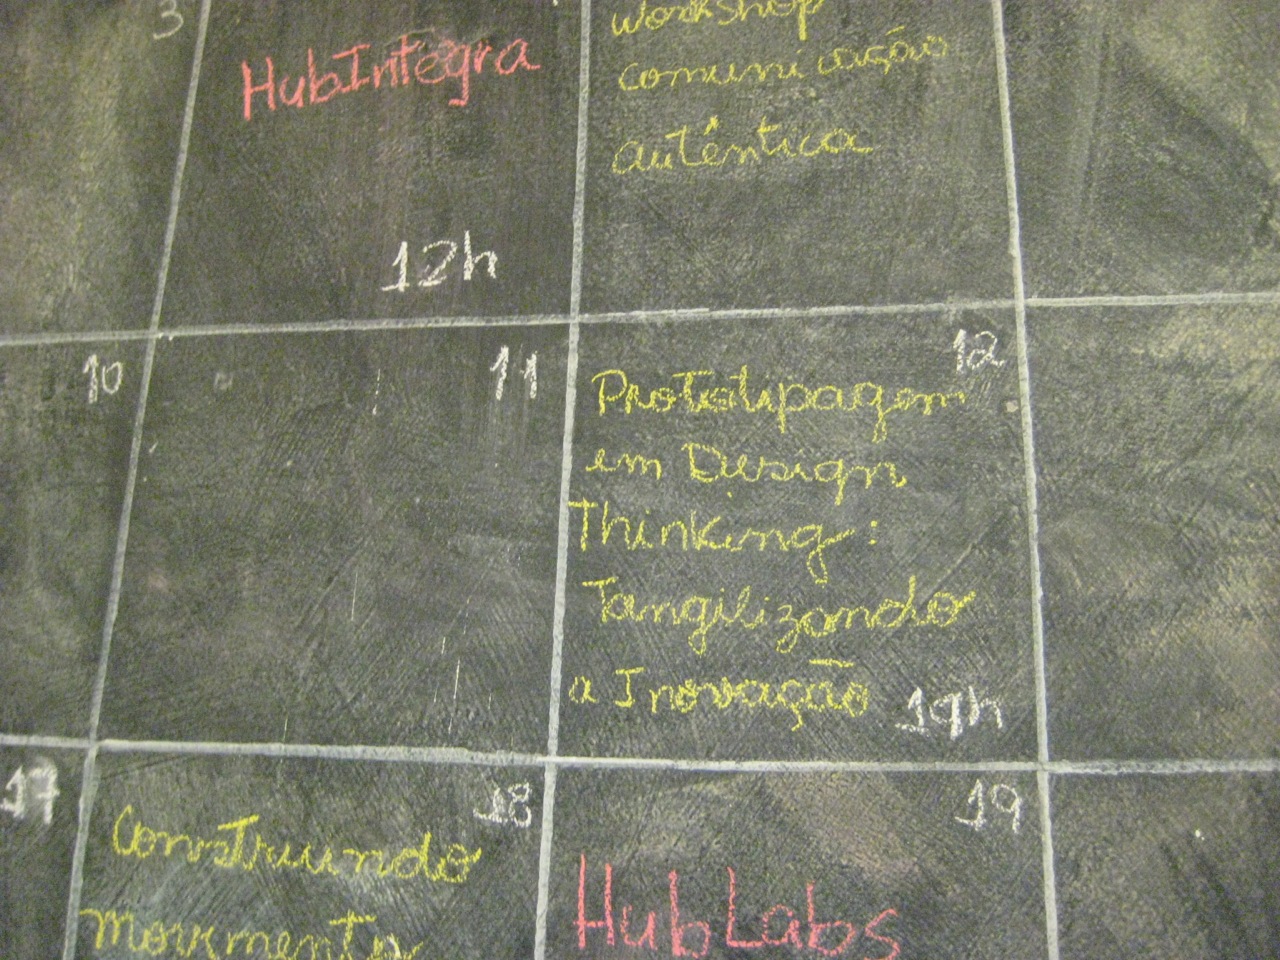 3
HubIntegra
12h
Workshop
comunicação
autêntica
10
11
12
Prototipagem
em Design
Thinking:
Tangilizando
a Inovação
19h
17
18
Construindo
Movimento
19
HubLabs